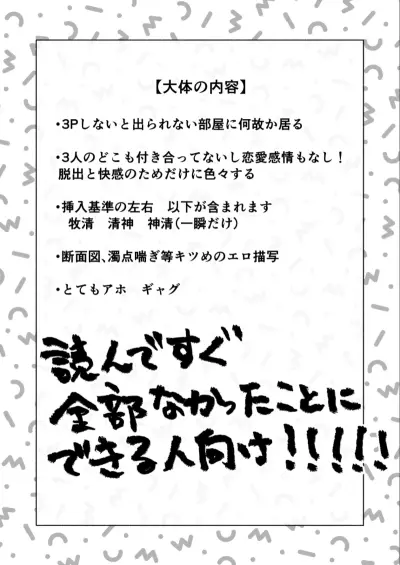 【大体の内容】
・3Pしないと出られない部屋に何故か居る
・3人のどこも付き合ってないし恋愛感情もなし！
脱出と快感のためだけに色々する
・挿入基準の左右　以下が含まれます
牧清　清神　神清(一瞬だけ)
・断面図、濁点喘ぎ等キツめのエロ描写
・とてもアホ　ギャグ
読んですぐ
全部なかったことに
できる人向け!!!!!